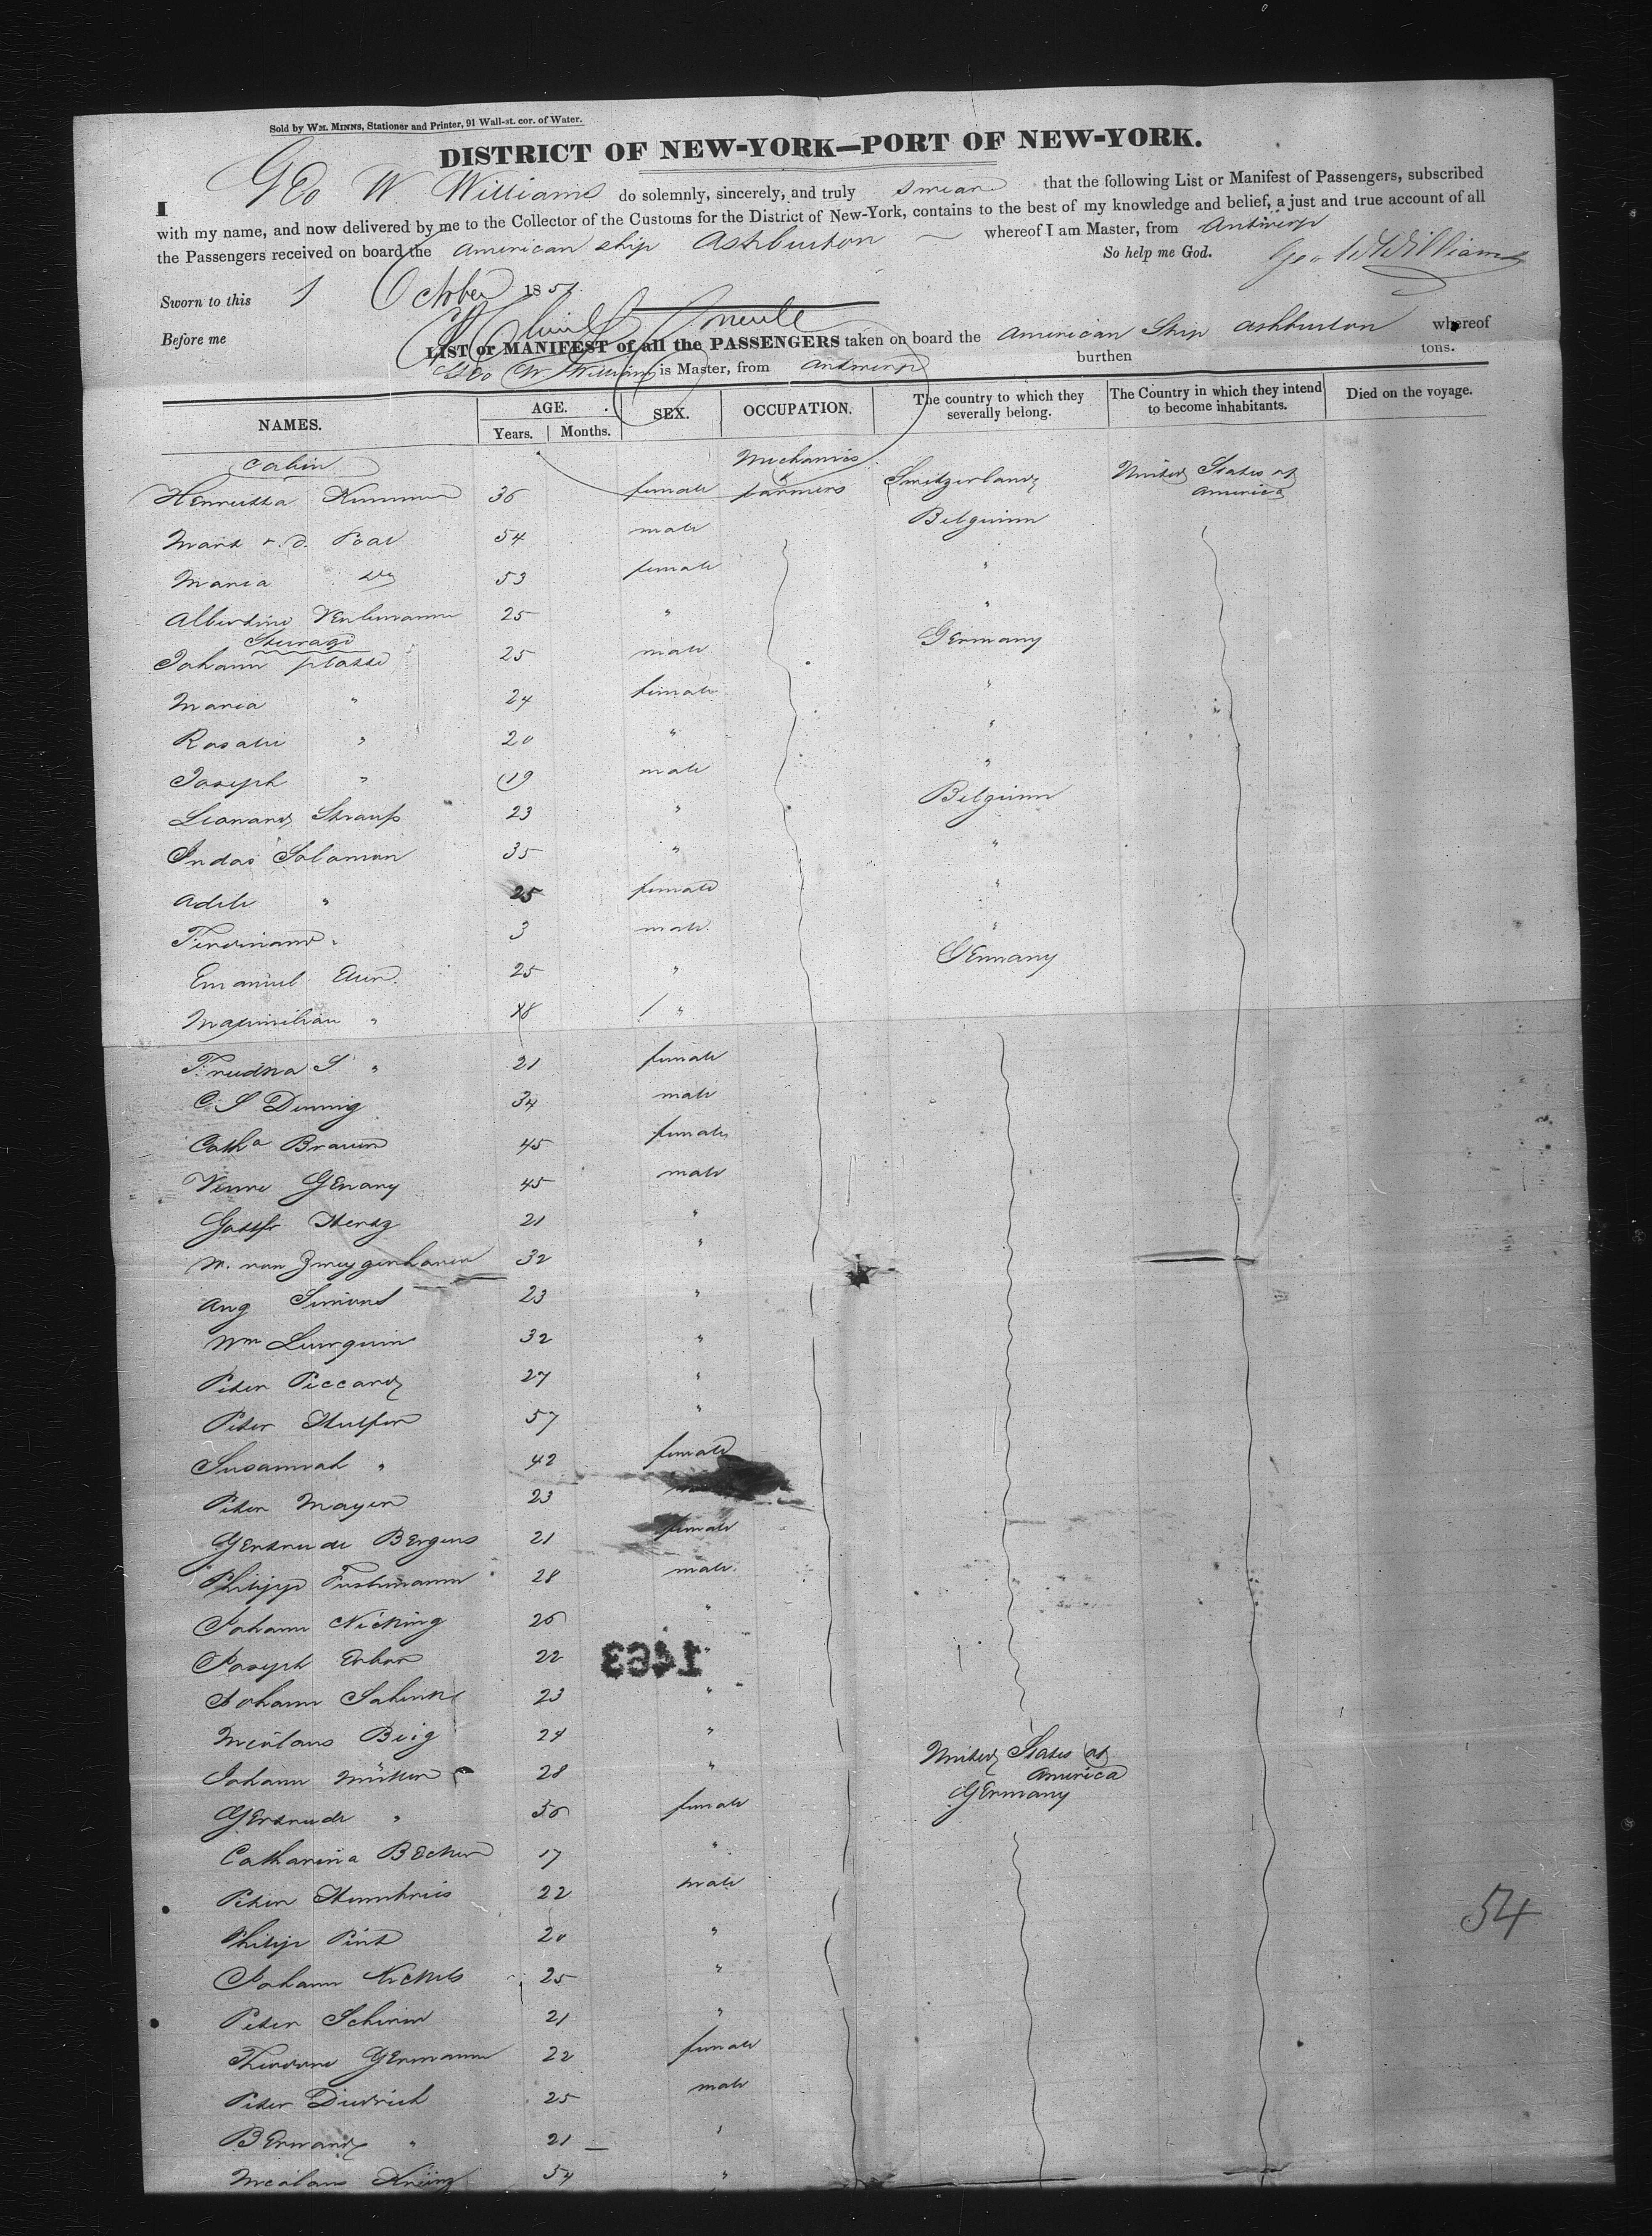 Sold by WM. MINNS, Stationer and Printer, 91 Wall-st. cor. of Water.
DISTRICT OF NEW-YORK—PORT OF NEW-YORK.
I Geo W. Williams do solemnly, sincerely, and truly swear that the following List or Manifest of Passengers, subscribed
with my name, and now delivered by me to the Collector of the Customs for the District of New-York, contains to the best of my knowledge and belief, a just and true account of all
the Passengers received on board the American ship Ashburton whereof I am Master, from Antwerp
So help me God. Geo W Williams
Sworn to this 1 October 1851.
Before me
LIST or MANIFEST of all the PASSENGERS taken on board the American Ship Ashburton whereof
Geo W. Williams is Master, from Antwerp burthen tons.
NAMES. AGE. Years. Months. SEX. OCCUPATION. The country to which they severally belong. The Country in which they intend to become inhabitants. Died on the voyage.
Cabin Mechanics
Henrietta 36 female & farmers Switzerland United States of America
v. d. Poal 54 male Belgium
Maria Do 53 female "
Albertine 25 " "
Steerage
Johann Plasse 25 male Germany
Maria " 24 female "
Rosalie " 20 " "
Joseph " 19 male "
Leonard Strauss 23 " Belgium
Salomon 35 " "
Adele " 25 female "
Ferdinand " 3 male "
Emanuel 25 " Germany
Maximilian " 18 "
S " 21 female
C S 34 male
Cath a Braun 45 female
45 male
Gottfr Hertz 21 "
M. van Zweygenhaven 32 "
Aug Simons 23 "
Wm Lurquin 32 "
Peter Piccard 27 "
Peter 57 "
Susannah " 42 female
Peter Mayer 23
Gertrude Bergers 21 female
Philipp 28 male
Johann Nicking 26 "
Joseph 22 "
1463
Johann 23 "
Beig 24 "
Johann Müller 28 " United States of America
Gertrude " 56 female Germany
Catharina Becker 17 "
Peter Humphries 22 male
Philip Pint 20 "
54
Johann Nickels 25 "
Peter 21 "
Theodore Germann 22 female
Peter Diedrich 25 male
Bernard " 21 "
54 "